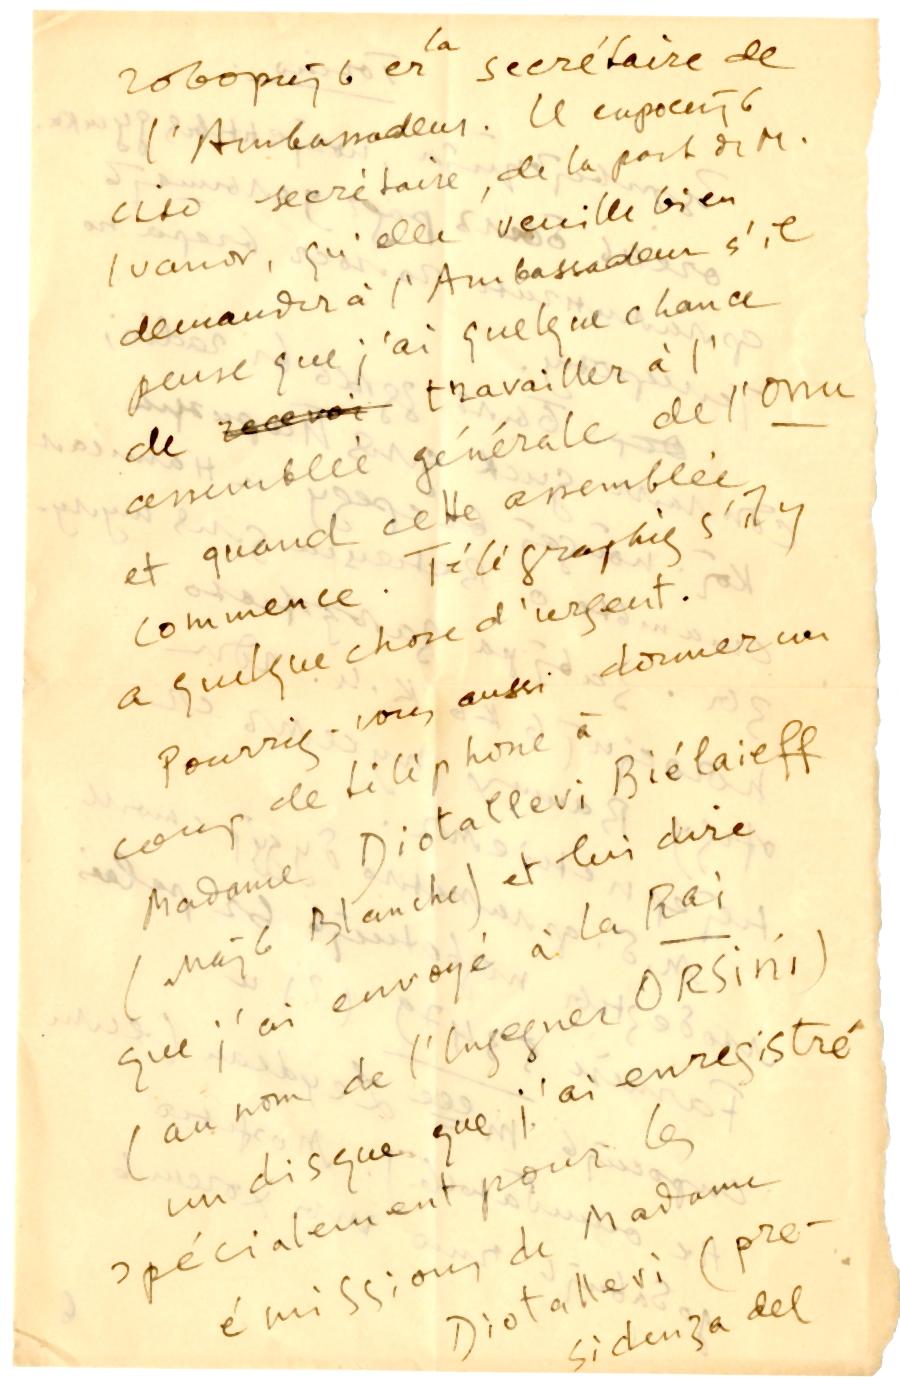 говорить съ la secrétaire de
l'Ambassadeur. И спросить
сію secrétaire, de la part de M.
Ivanov, qu'elle veuille bien
demander à l'Ambassadeur s'il
pense que j'ai quelque chance
de recevoi travailler à l'
assemblée générale de l'Onu
et quand cette assemblée
commence. Télégraphiez s'il y
a quelque chose d'urgent.
Pourriez-vous aussi donner un
coup de téléphone à
Madame Diotallevi Biélaieff
(Мать Blanche) et lui dire
que j'ai envoyé à la Rai
(au nom de l'Ingegner ORSini)
un disque que j'ai enregistré
spécialement pour les
émissions de Madame
Diotallevi (pre-
sidenza del